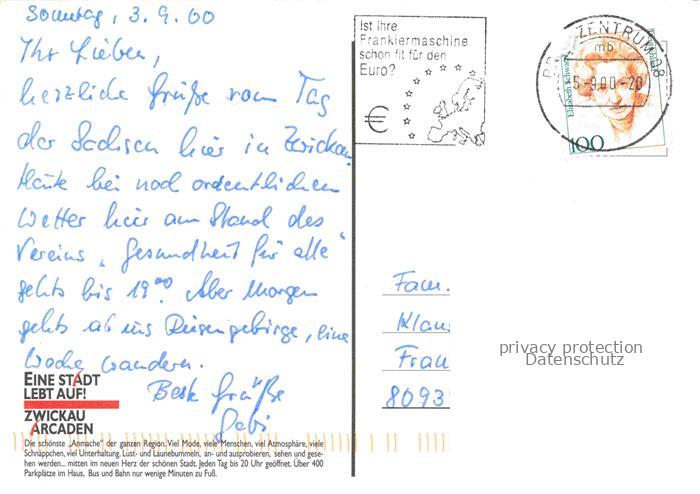 Sonntag, 3.9.00
Ihr Lieben,
herzliche Grüße vom Tag
der Sachsen hier in Zwickau.
Heute bei noch ordentlichem
Wetter hier am Stand des
Vereins „Gesundheit für alle“
gehts bis 19⁰⁰. Aber morgen
gehts ab ins Riesengebirge, eine
Woche wandern.
Beste Grüße
Gabi
EINE STADT
LEBT AUF!
ZWICKAU
ARCADEN
Die schönste „Anmache“ der ganzen Region. Viel Mode, viele Menschen, viel Atmosphäre, viele
Schnäppchen, viel Unterhaltung. Lust- und Launebummeln, an- und ausprobieren, sehen und gese-
hen werden... mitten im neuen Herz der schönen Stadt. Jeden Tag bis 20 Uhr geöffnet. Über 400
Parkplätze im Haus, Bus und Bahn nur wenige Minuten zu Fuß.
Ist Ihre
Frankiermaschine
schon fit für den
Euro?
€
ZENTRUM 08
mb
5-9.00-20
Elisabeth Schwarz
100
Fam.
Klau
Frau
8093
privacy protection
Datenschutz